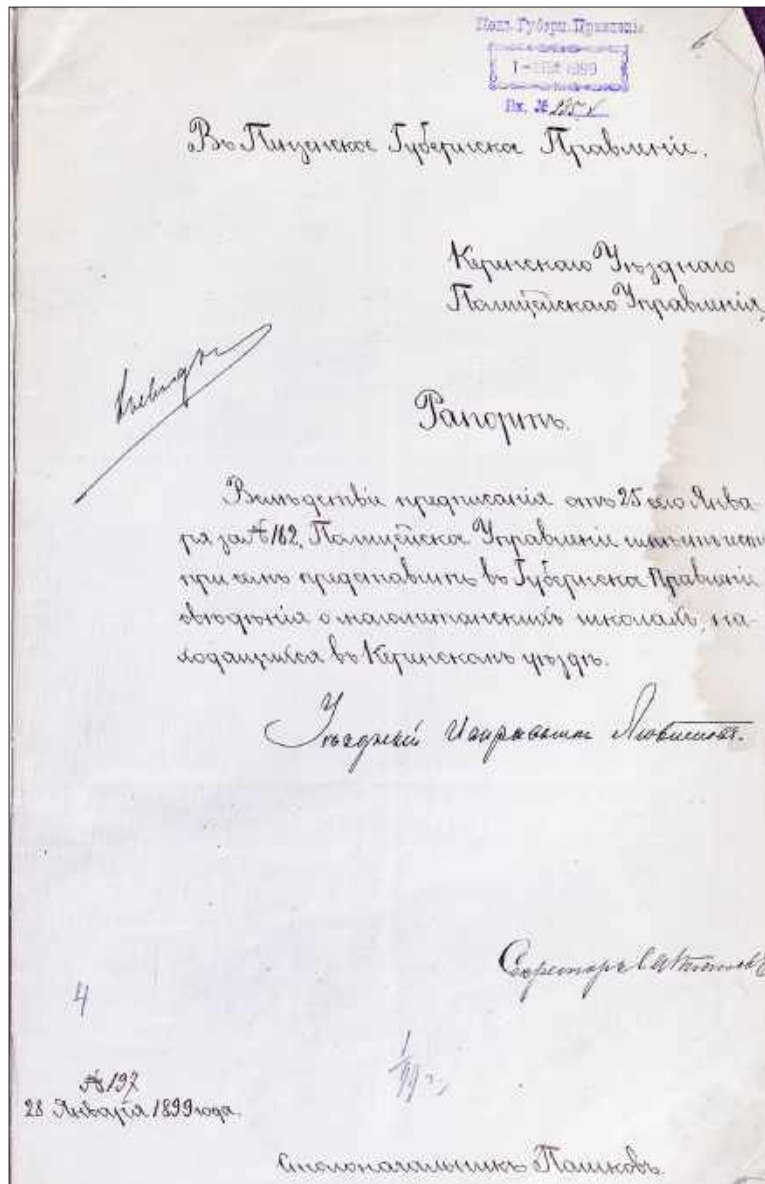 Пенз. Губерн. Правленіе
1899
Вх. №
6
Въ Пензенское Губернское Правленіе.
Керенскаго Уѣзднаго
Полицейскаго Управленія
Рапортъ.
Вслѣдствіе предписанія отъ 25 сего Янва-
ря за № 162, Полицейское Управленіе имѣетъ честь
при семъ представить въ Губернское Правленіе
свѣдѣнія о магометанскихъ школахъ, на-
ходящихся въ Керенскомъ уѣздѣ.
Уѣздный Исправникъ
Секретарь
4
№ 197
28 Января 1899 года.
Столоначальникъ Пашковъ.